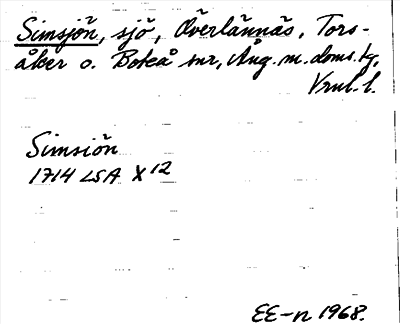 Simsjön, sjö, Överlännäs, Tors-
åker o. Boteå snr, Ång. m. doms. tg,
Vnrl. l.
Simsiön
1714 LSA X 12
EE-n 1968.